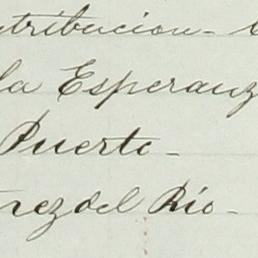 tribucion-
la Esperanz
Puerto-
rez del Río-